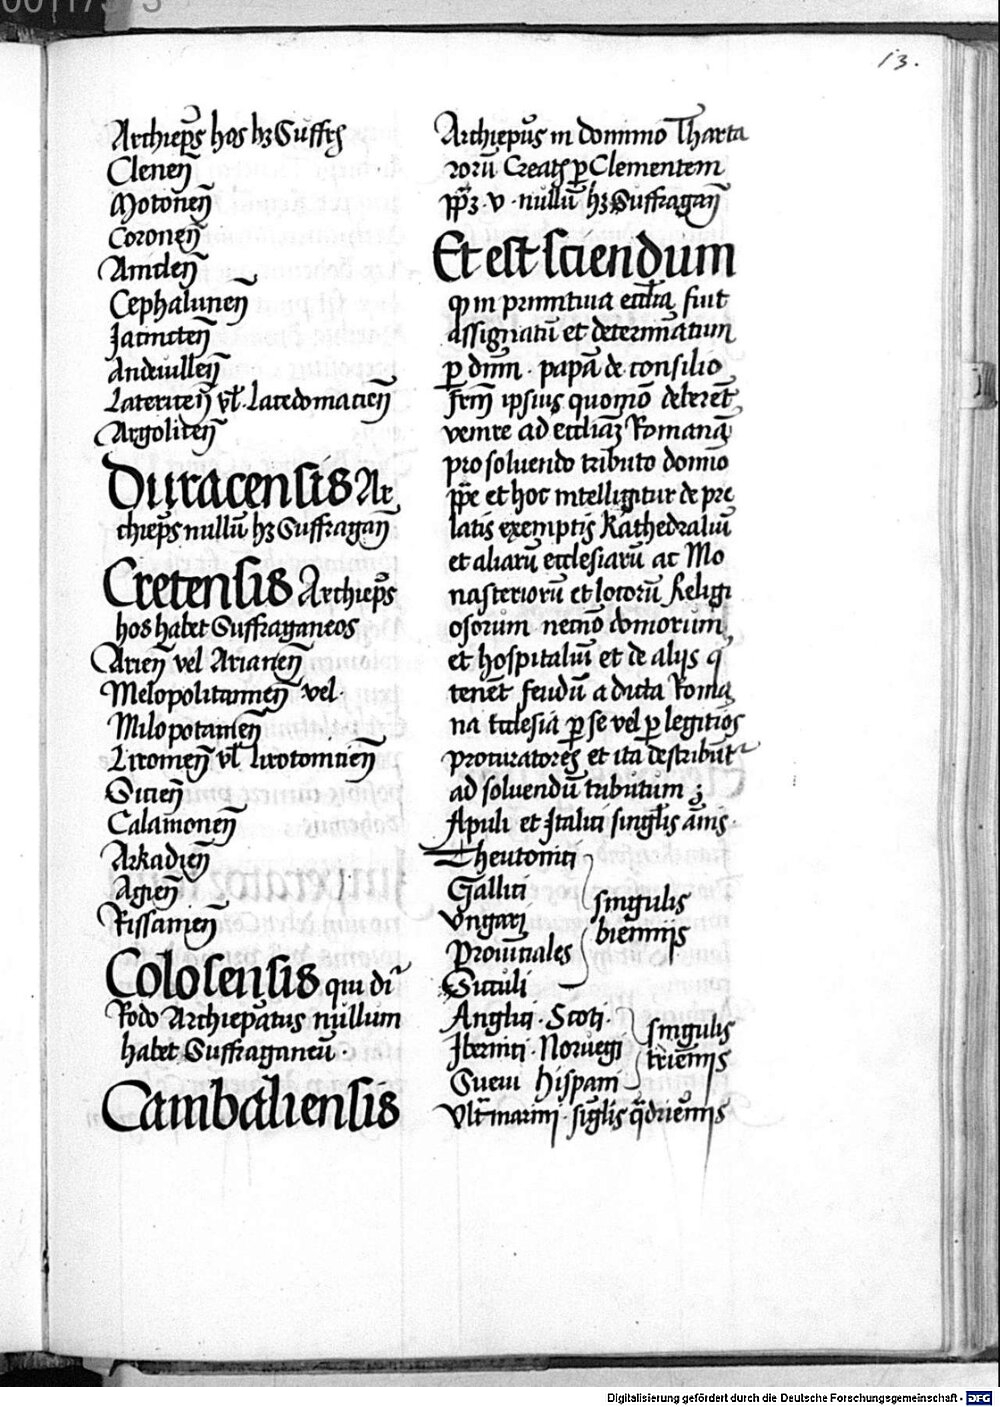 13.
Archiep̃s hos hꝫ Suffrꝭ
Clenen̄
Motonen̄
Coronen̄
Amiclen̄
Cephalunen̄
Jacincten̄
Andeuillen̄
Latericen̄ vl̃ Lacedomacien̄
Argoliten̄
Duracensis Ar
chiep̃s nullū hꝫ Suffragan̄
Cretensis Archiep̃s
hos habet Suffraganeos
Arien̄ vel Arianen̄
Melopolitanmen̄ vel
Milopotamen̄
Liromen̄ vl̃ lirotomnen̄
Sicien̄
Calamonen̄
Arkadien̄
Agien̄
Kissamen̄
Colosensis qui dr̃
Rodo Archiep̃atus nullum
habet Suffraganeū .
Cambaliensis
Archiep̃us in dominio Tharta
rorū Creatꝰ ꝑ Clementem
pp̃ꝫ . v . nullū hꝫ Suffragan̄
Et est sciendum
ꝙ in primitiua eccl̃ia fuit
assignatū et determinatum
ꝑ dñm . papā de consilio
frm̃ ipsius quomō deberēt
venire ad eccliaꝫ Romanā
pro soluendo tributo domīo
pp̃e et hoc intelligitur de pre
latis exemptis Kathedraliū
et aliarū ecclesiarū ac Mo
nasteriorū et locorū Religi
osorum necnō domorum
et hospitaliū et de alijs q̃
tenēt feudū a dicta Roma
na ecclesia ꝑ se vel ꝑ legitios
procuratores et ita describūtʳ
ad soluendū tributum ꝫ
Apuli et Italici singlis ānis .
Theutonici
Gallici
Vngari
Prouīciales
Siculi
singulis
bienniis
Anglici . Scoti .
Iberinci . Noruegi
Sueui Hispani
singulis
trieniis
Vltr̃marini . singlis q̃drieniis
Digitalisierung gefördert durch die Deutsche Forschungsgemeinschaft - DFG